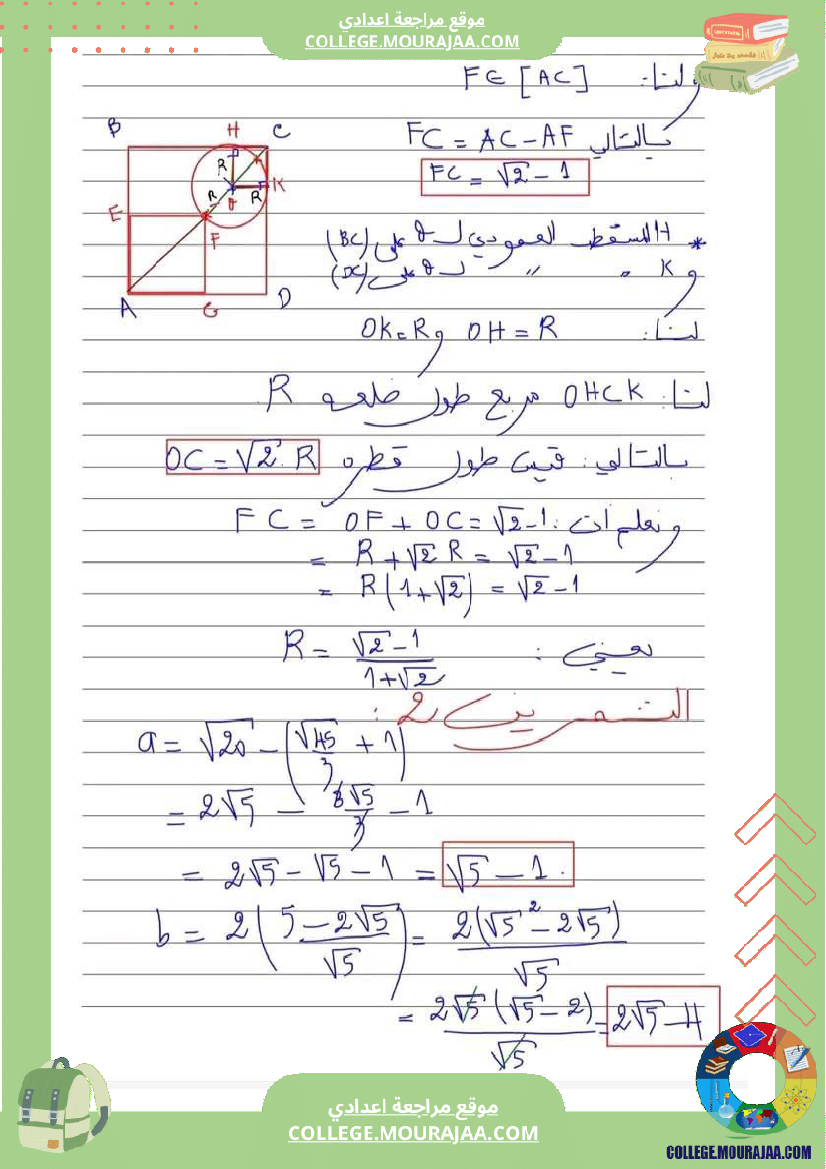 موقع مراجعة اعدادي
COLLEGE.MOURAJAA.COM
و لنا: F∈[AC]
بالتالي FC = AC - AF
FC = √2 - 1
B H C
R
K
R O R
E F
A G D
* H المسقط العمودي لـ O على (BC)
و K " " لـ O على (DC)
و لنا: OH = R و OK = R
لنا: OHCK مربع طول ضلعه R
بالتالي: قيس طول قطره OC = √2 . R
و نعلم ان: FC = OF + OC = √2 - 1
= R + √2 R = √2 - 1
= R(1 + √2) = √2 - 1
يعني: R = (√2 - 1)/(1 + √2)
التمرين 2:
a = √20 - (√45/3 + 1)
= 2√5 - 3√5/3 - 1
= 2√5 - √5 - 1 = √5 - 1.
b = 2((5 - 2√5)/√5) = 2(√5² - 2√5)/√5
= 2√5(√5 - 2)/√5 = 2√5 - 4
موقع مراجعة اعدادي
COLLEGE.MOURAJAA.COM
COLLEGE.MOURAJAA.COM